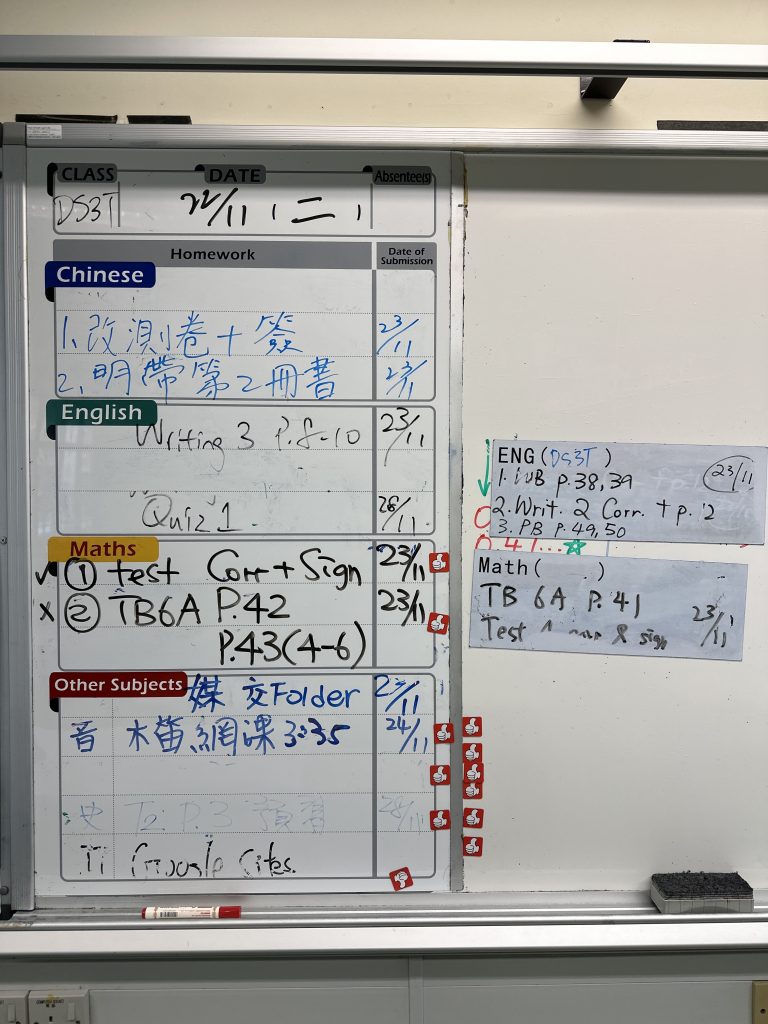 CLASS DATE Absentee(s)
DS3T 22/11 (二)
Homework Date of Submission
Chinese
1.改測卷+簽 23/11
2.明帶第2冊書 23/11
English
Writing 3 P.8-10 23/11
Quiz 1 28/11
Maths
✓ ① test Corr + Sign 23/11
X ② TB6A P.42 23/11
P.43(4-6)
Other Subjects
媒 交Folder 23/11
音 木笛網課3:35 24/11
史 T2 P.3 預習 28/11
IT Google Sites.
ENG (DS3T) 23/11
1. WB p.38,39
2. Writ. 2 Corr. + p.12
3. PB p.49,50
Math( )
TB 6A P.41 23/11
Test & sign